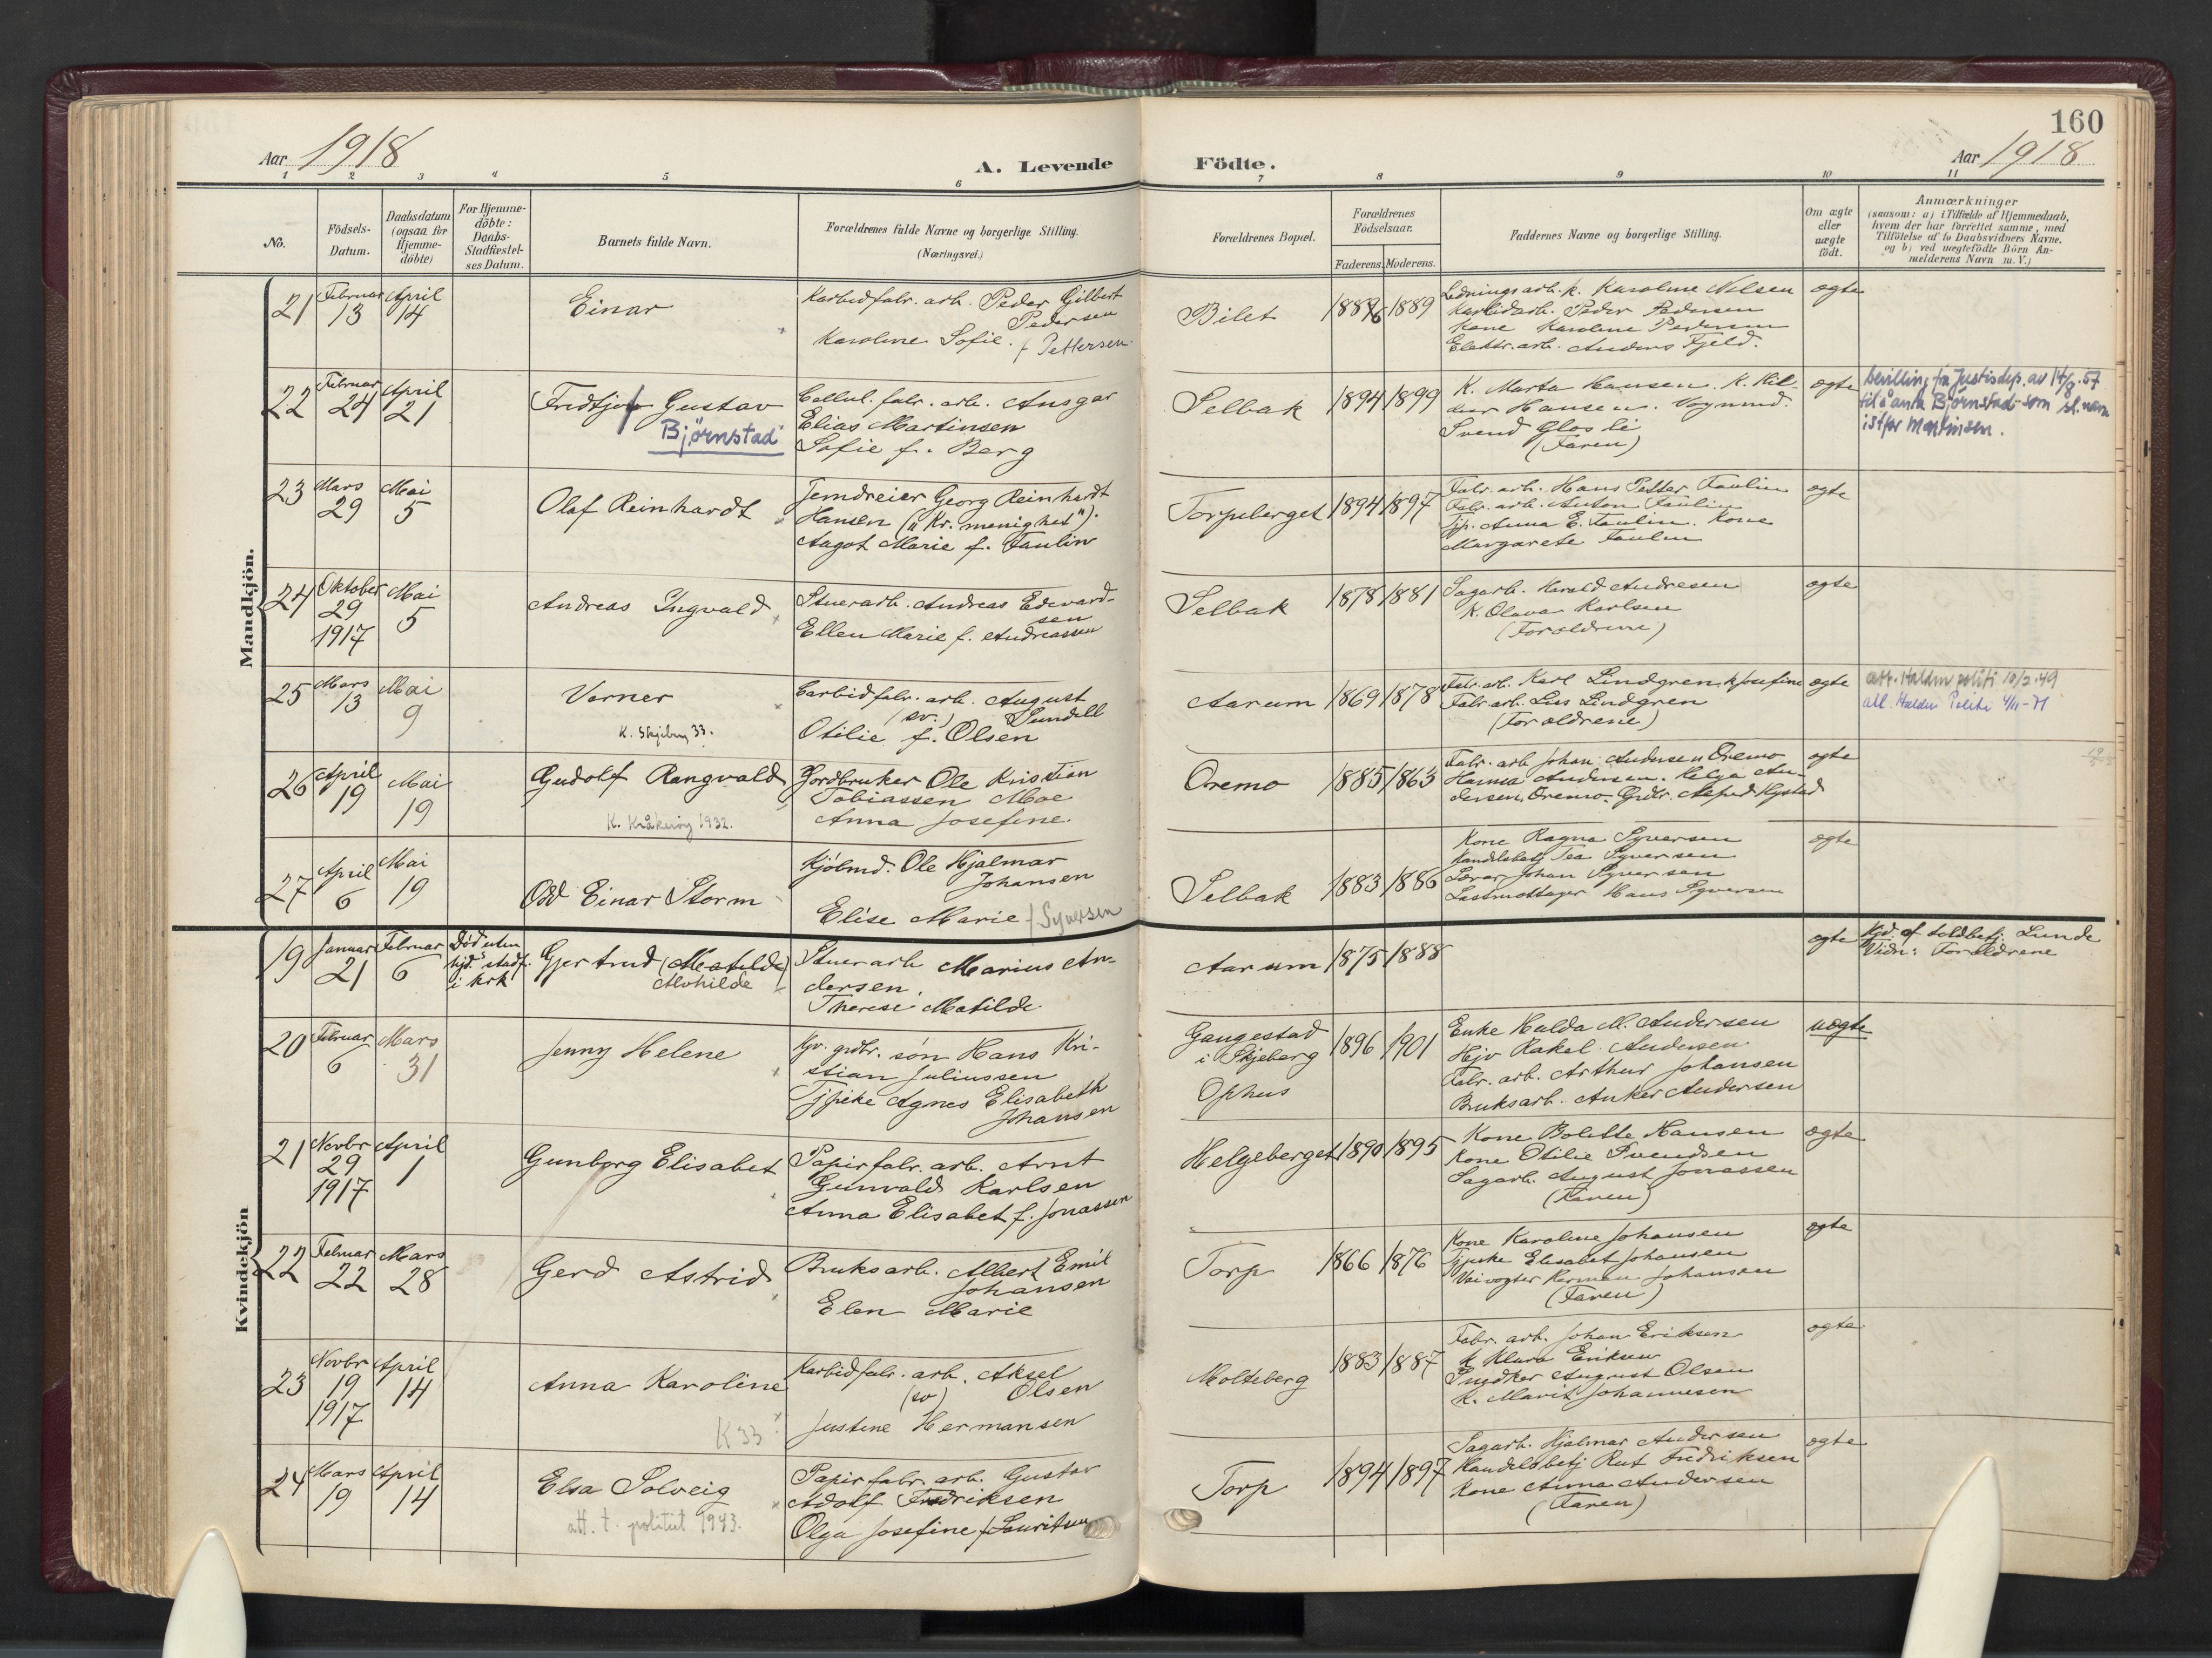 160
Aar 1918
A. Levende
Födte.
Aar 1918
1 2 3 4 5 6 7 8 9 10 11
No.
Födsels-
Datum.
Daabsdatum
(ogsaa for
Hjemme-
döbte)
For Hjemme-
döbte:
Daabs-
Stadfæstel-
ses Datum.
Barnets fulde Navn.
Forældrenes fulde Navne og borgerlige Stilling.
(Næringsvei.)
Forældrenes Bopæl.
Forældrenes
Födselsaar.
Faderens. Moderens.
Faddernes Navne og borgerlige Stilling.
Om ægte
eller
uægte
födt.
Anmærkninger
(saasom: a) i Tilfælde af Hjemmedaab,
hvem der har forrettet samme, med
Tilföielse af to Daabsvidners Navne,
og b) ved uægtefödte Börn An-
melderens Navn m. V.)
Mandkjön.
21
Februar
13
April
14
Einar
Karbidfabr. arb. Peder Gilbert
Pedersen
Karoline Sofie f Pettersen
Bilet
1886
1889
Ledningsarb. k. Karoline Nilsen
Karbidarb. Peder Pedersen
Kone Karoline Pedersen
Elektr. arb. Anders Fjeld.
egte
22
Februar
24
April
21
Fredtjov Gustav
Björnstad
Cellul. fabr. arb. Ansgar
Elias Martinsen
Sofie f. Berg
Selbak
1894
1899
K. Marta Hansen. K. Hil-
dur Hansen. Vognmd.
Svend Glosli
(Faren)
egte
bevilling fra Justisdep. av 14/8.57
til å anta Björnstad som sl.navn
istfor Martinsen.
23
Mars
29
Mai
5
Olaf Reinhardt
Jerndreier Georg Reinhardt
Hansen ("Kr. menighet").
Aagot Marie f. Faulin
Torpeberget
1894
1897
Fabr. arb. Hans Petter Faulin
Fabr. arb. Anton Faulin
Tjp. Anna E. Faulin. Kone
Margarete Faulin
egte
24
Oktober
29
1917
Mai
5
Andreas Ingvald
Stuerarb. Andreas Edvard-
sen
Ellen Marie f. Andreassen
Selbak
1878
1881
Sagarb. Harald Andresen
K. Olava Karlsen
(Foreldrene)
egte
25
Mars
13
Mai
9
Verner
K. Skjeberg 33.
Carbidfabr. arb. August
(sv.) Sundell
Otilie f. Olsen
Aarum
1869
1878
Fabr. arb. Karl Lindgren, k Josefine
Fabr. arb. Lars Lindgren
(Foreldrene)
egte
att. Halden politi 10/2.49
att. Halden Politi 4/11-71
26
April
19
Mai
19
Gudolf Rangvald
K. Kråkerøy 1932.
Jordbruker Ole Kristian
Tobiassen Moe
Anna Josefine.
Oremo
1885
1863
Fabr. arb Johan Andersen Oremo
Hanna Andersen. Helga An-
dersen, Oremo. Grdbr. Alfred Hystad
egte
27
April
6
Mai
19
Odd Einar Storm
Kjöbmd. Ole Hjalmar
Johansen
Elise Marie f Syversen
Selbak
1883
1886
Kone Ragna Syversen
Handelsbetj Tea Syversen
Lærer Johan Syversen
Lastmottager Hans Syversen
egte
Kvindekjön
19
Januar
21
Februar
6
Död uten
stadf.
i kirk
Gjertrud (Matilde)
Alvhilde
Stuerarb Marius An-
dersen.
Therese Matilde
Aarum
1875
1888
egte
Hjd. af toldbetj. Lunde
Vidn: Foreldrene
20
Februar
6
Mars
31
Jenny Helene
Gjv. grdbr. sön Hans Kri-
stian Juliussen
Tjpike Agnes Elisabeth
Johansen
Gangestad
i Skjeberg
Ophus
1896
1901
Enke Hulda M. Andersen
Hjv Rakel Andersen
Fabr. arb. Arthur Johansen
Bruksarb. Anker Andersen
uegte
21
Novbr
29
1917
April
1
Gunborg Elisabet
Papirfabr. arb. Arnt
Gunvald Karlsen
Anna Elisabet f. Jonassen
Helgeberget
1890
1895
Kone Bolette Hansen
Kone Otilie Svendsen
Sagarb. August Jonassen
(Faren)
egte
22
Februar
22
Mars
28
Gerd Astrid
Bruksarb. Albert Emil
Johansen
Elen Marie
Torp
1866
1876
Kone Karoline Johansen
Tjpike Elisabet Johansen
Veivogter Herman Johansen
(Faren)
egte
23
Novbr
19
1917
April
14
Anna Karoline
K 33
Karbidfabr. arb. Aksel
(sv) Olsen
Justine Hermansen
Molteberg
1883
1887
Fabr. arb. Johan Eriksen
K Klara Eriksen
Snedker August Olsen
K. Marit Johannesen
egte
24
Mars
19
April
14
Elsa Solveig
att. t. politiet 1943.
Papirfabr. arb. Gustav
Adolf Fredriksen
Olga Josefine f Lauritsen
Torp
1894
1897
Sagarb. Hjalmar Andersen
Handelsbetj Rut Fredriksen
Kone Anna Andersen
(Faren)
egte